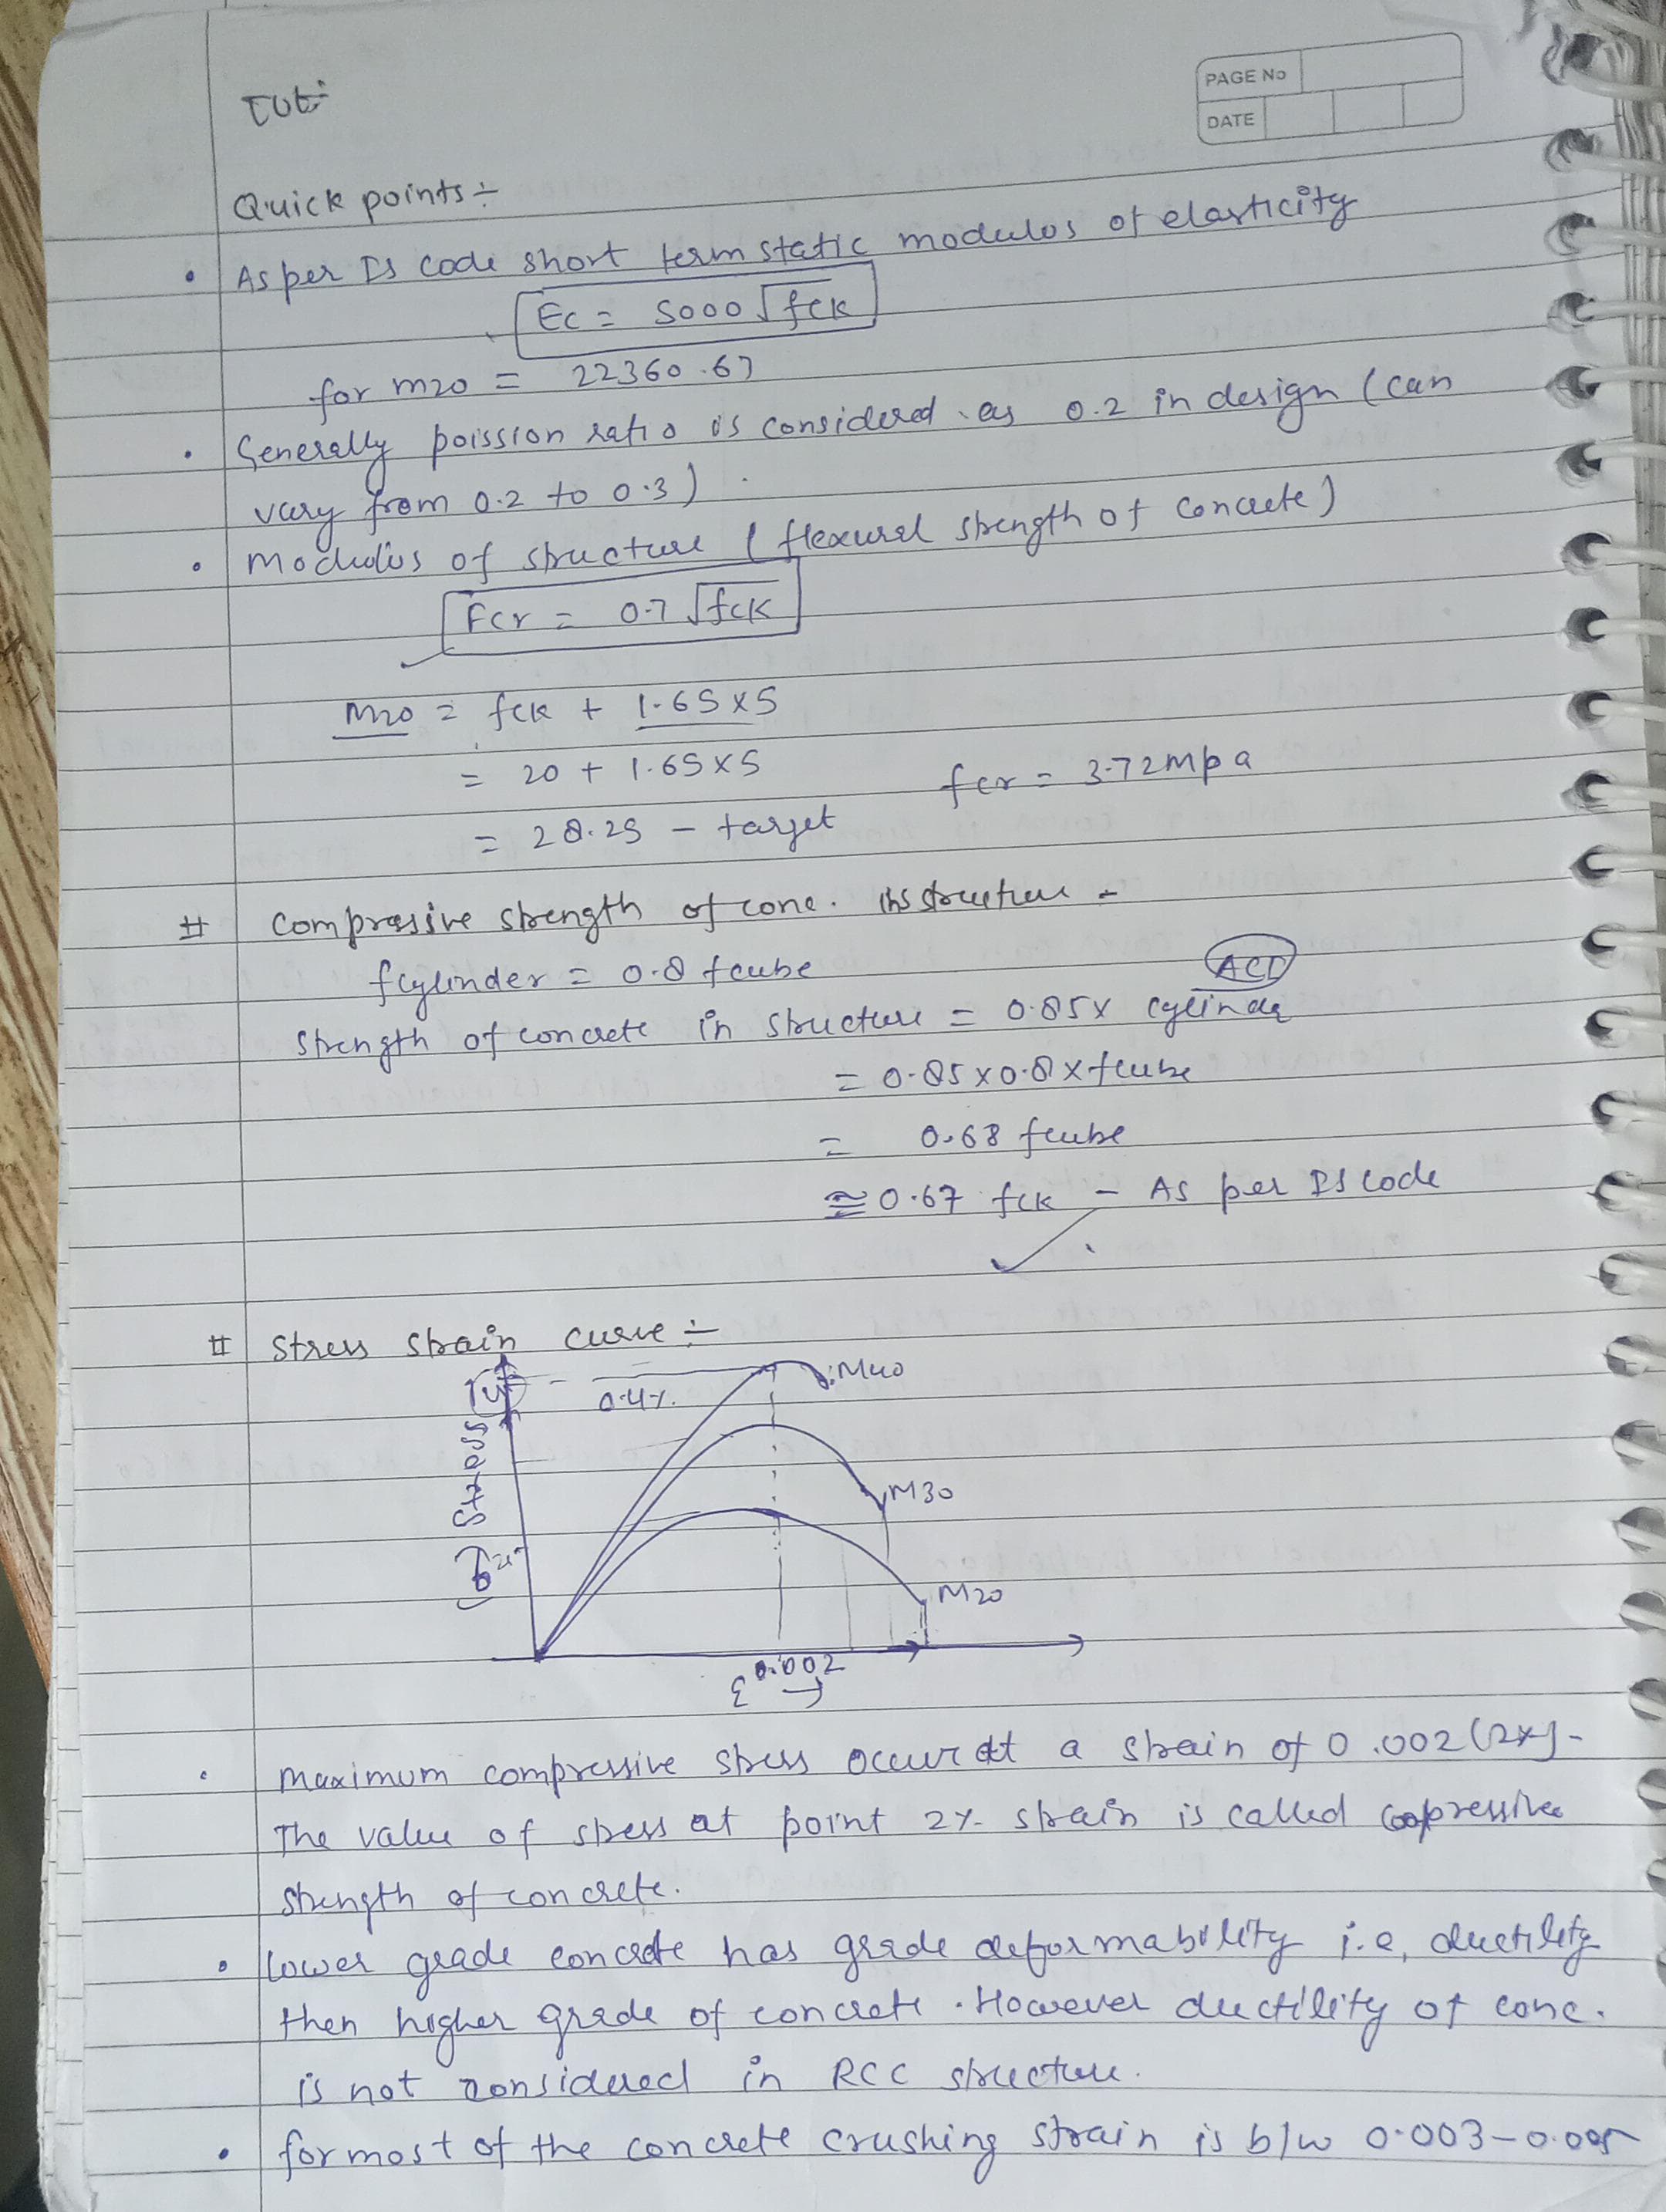 PAGE No
DATE
Tut:-
Quick points ÷
• As per IS code short term static modulus of elasticity
Ec = 5000 √fck
for m20 = 22360.67
• Generally poission ratio is considered as 0.2 in design (can
vary from 0.2 to 0.3)
• modulus of structure (flexural strength of concrete)
Fcr = 0.7 √fck
M20 = fck + 1.65x5
= 20 + 1.65x5
fcr = 3.72mpa
= 28.25 - target
# Compressive strength of conc. in structure -
fcylinder = 0.8 fcube
ACI
Strength of concrete in structure = 0.85x cylinder
= 0.85x0.8xfcube
= 0.68 fcube
≅ 0.67 fck - As per IS code
# Stress strain curve ÷
0.4%
M40
Stress
M30
M20
0.002
ε →
• maximum compressive stress occur at a strain of 0.002 (2%)-
The value of stress at point 2% strain is called compressive
strength of concrete.
• lower grade concrete has grade deformability i.e, ductility
then higher grade of concrete. However ductility of conc.
is not considered in RCC structure.
• for most of the concrete crushing strain is b/w 0.003-0.005